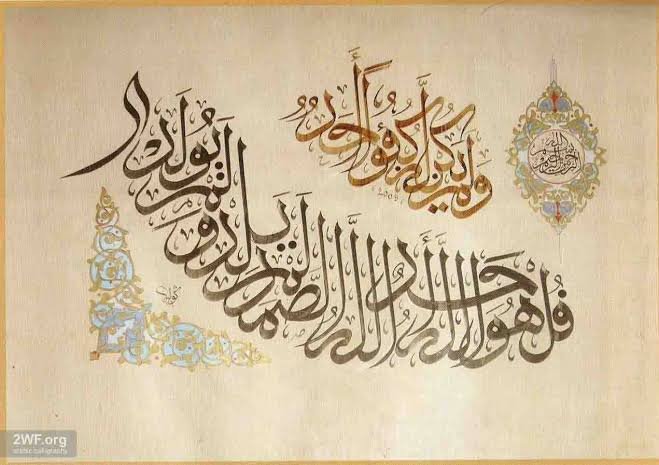 بسم الله الرحمن الرحيم
قُلْ هُوَ اللَّهُ أَحَدٌ اللَّهُ الصَّمَدُ لَمْ يَلِدْ وَلَمْ يُولَدْ
وَلَمْ يَكُنْ لَهُ كُفُوًا أَحَدٌ
2WF.org
arabic calligraphy